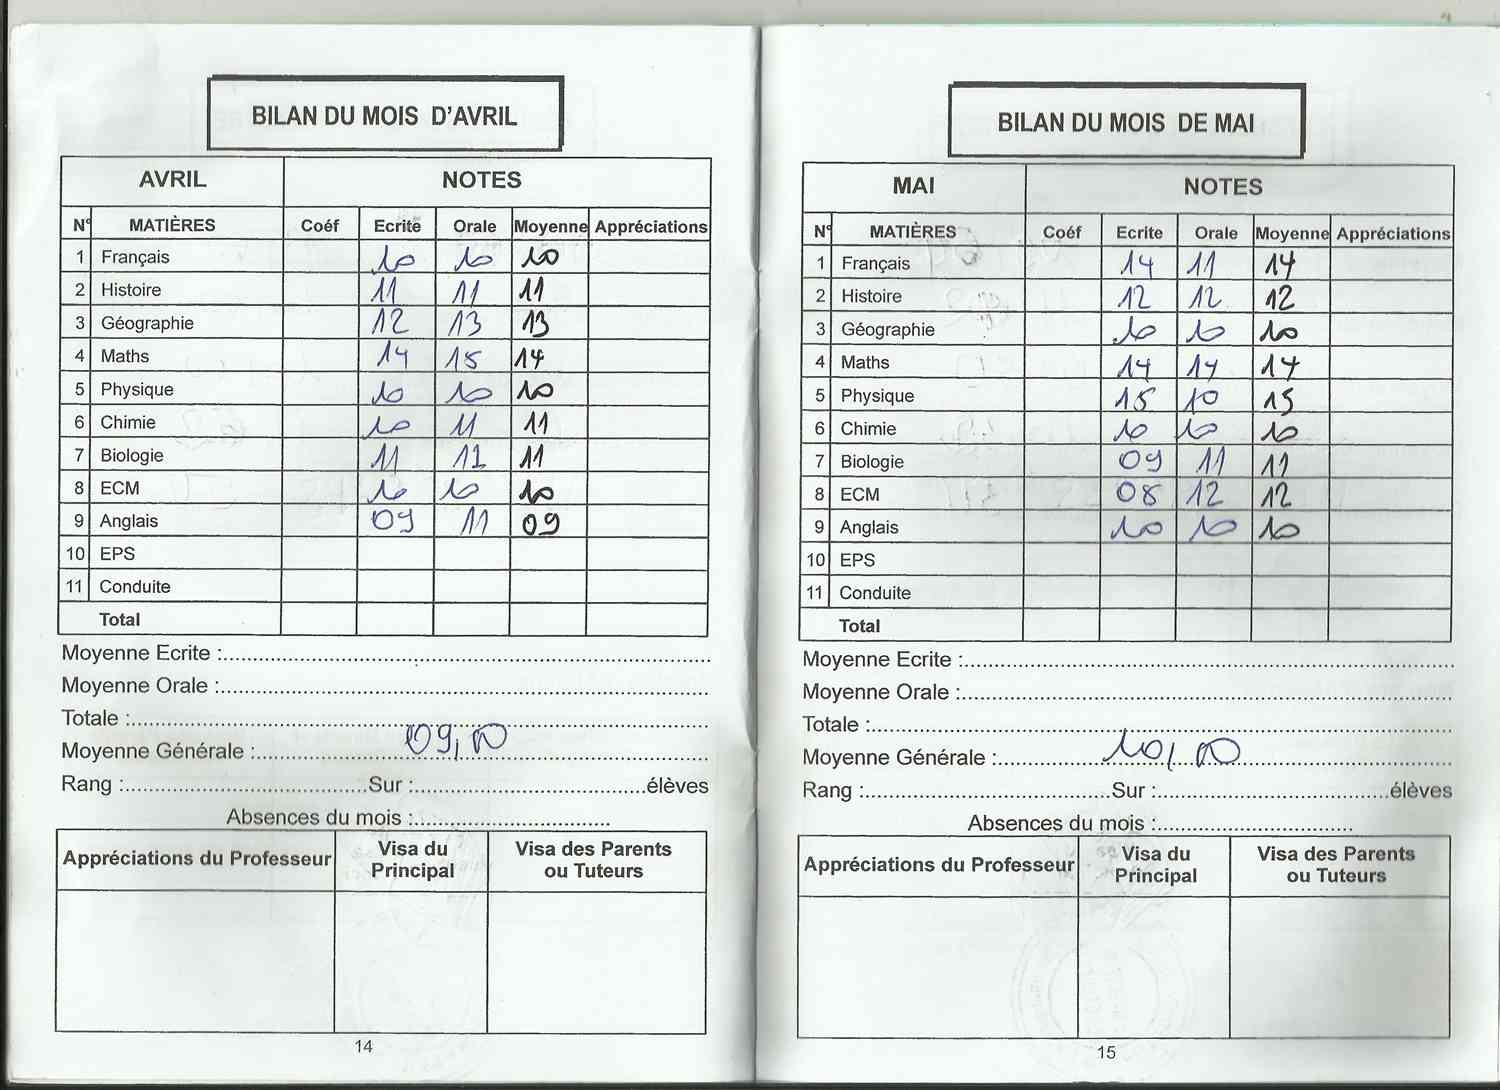 BILAN DU MOIS D'AVRIL
AVRIL NOTES
N° MATIÈRES Coéf Ecrite Orale Moyenne Appréciations
1 Français 10 10 10
2 Histoire 11 11 11
3 Géographie 12 13 13
4 Maths 14 15 14
5 Physique 10 10 10
6 Chimie 10 11 11
7 Biologie 11 11 11
8 ECM 10 10 10
9 Anglais 09 11 09
10 EPS
11 Conduite
Total
Moyenne Ecrite :
Moyenne Orale :
Totale :
Moyenne Générale : 09,00
Rang : Sur : élèves
Absences du mois :
Appréciations du Professeur Visa du Principal Visa des Parents ou Tuteurs
14
BILAN DU MOIS DE MAI
MAI NOTES
N° MATIÈRES Coéf Ecrite Orale Moyenne Appréciations
1 Français 14 11 14
2 Histoire 12 12 12
3 Géographie 10 10 10
4 Maths 14 14 14
5 Physique 15 10 15
6 Chimie 10 10 10
7 Biologie 09 11 11
8 ECM 08 12 12
9 Anglais 10 10 10
10 EPS
11 Conduite
Total
Moyenne Ecrite :
Moyenne Orale :
Totale :
Moyenne Générale : 10,00
Rang : Sur : élèves
Absences du mois :
Appréciations du Professeur Visa du Principal Visa des Parents ou Tuteurs
15